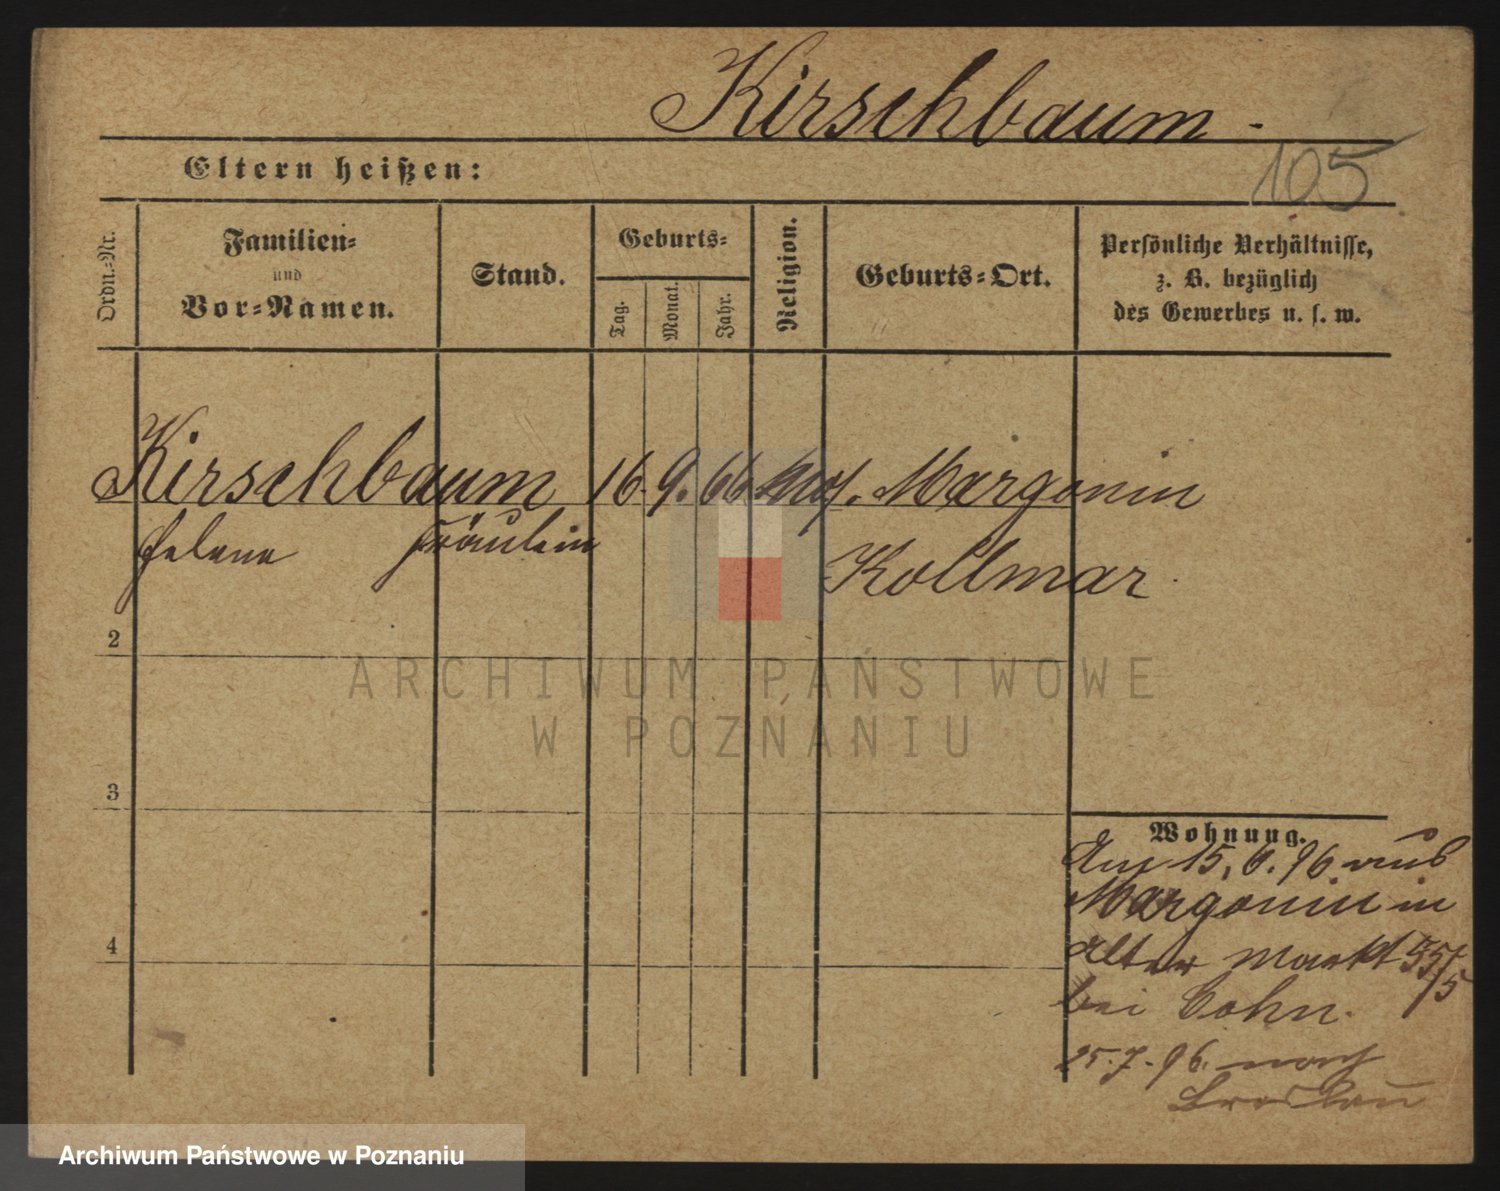 Kirschbaum -
Eltern heißen:
105
Ordn.-Nr.
Familien-
und
Vor-Namen.
Stand.
Geburts-
Tag.
Monat.
Jahr.
Religion.
Geburts-Ort.
Persönliche Verhältnisse,
z. B. bezüglich
des Gewerbes u. s. w.
Kirschbaum 16. 9. 66 mos. Margonin
Helene Fräulein
Kollmar
2
ARCHIWUM PAŃSTWOWE
W POZNANIU
3
Wohnung.
Am 15. 6. 96 aus
Margonin in
4
Alter Markt 55/5
bei Cohn.
25. 7. 96. nach
Archiwum Państwowe w Poznaniu